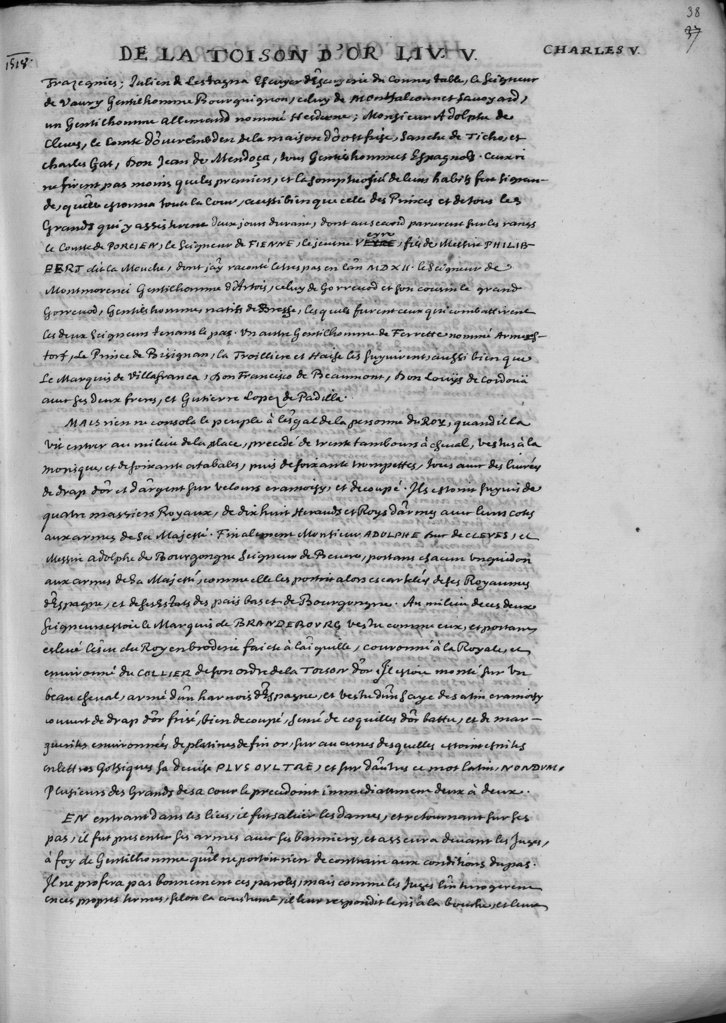 38
37
1518.
DE LA TOISON D'OR LIV. V.
CHARLES V.
Trazegnies; Julien de Lestagna Escuyer d'Escuyerie du Connestable, le Seigneur
de Vaury Gentilhomme Bourguignon, celuy de Montfalconnet Savoyard,
un Gentilhomme allemand nommé ; Monsieur Adolphe de
Cleves, le Comte d'ouvrembden de la maison d'oostfrise, Sanche de Ticho, et
Charles Gat, Don Jean de Mendoça, tous Gentishommes Espagnols. Ceux ci
ne firent pas moins que les premiers, et la somptuosité de leurs habits fut si gran-
de, qu'elle estonna toute la Cour, aussi bien que celle des Princes et de tous les
Grands qui y assisterent deux jours durant, dont au second parurent sur les rangs
le Comte de PORCIEN, le Seigneur de FIENNE, le jeune VEYRE, fils de Messire PHILIB-
BERT dit la Mouche, dont j'ay raconté le trespas en l'an MDXII. le Seigneur de
Montmorenci Gentilhomme d'Artois, celuy de Gorrevod et son cousin le grand
Gorrevod, Gentishommes natifs de Bresse, lesquels furent ceux qui combattirent
les deux Seigneurs tenans le pas. Un autre Gentilhomme de Ferrette nommé Armes-
torf, le Prince de Bisignan, la Troilliere et Haise les suyvirent, aussi bien que
Le Marquis de Villafranca, Don Francisco de Beaumont, Don Louijs de Cordouä
avec ses deux freres, et Gutierre Lopez de Padilla.
MAIS rien ne consola le peuple à l'esgal de la personne du ROY, quand il la
vit entrer au milieu de la place, precedé de trente tambours à cheval, vestus à la
morisque, et de soixante atabales, puis de soixante trompettes, tous avec des livrées
de drap d'or et d'argent sur velours cramoisy, et decoupé. Ils estoint suyvis de
quatre massiers Royaux, de dix huit Herauds et Roys d'armes avec leurs cotes
aux armes de Sa Majesté. Finalement Monsieur ADOLPHE Duc de CLEVES, et
Messire adolphe de Bourgongne Seigneur de Bevere, portans chacun un guidon
aux armes de Sa Majesté, comme elle les portoit alors escartelées de ses Royaumes
d'Espagne, et de ses Estats des païs bas et de Bourgongne. Au milieu de ces deux
Seigneurs estoit le Marquis de BRANDEBOURG vestu comme eux, et portant
eslevé l'escu du Roy en broderie faicte à l'aiguille, couronné à la Royale, et
environné du COLLIER de son ordre de la TOISON d'or. Il estoit monté sur un
beau cheval, armé d'un harnois d'Espagne, et vestu d'un saye de satin cramoisy
couvert de drap d'or frisé, bien decoupé, semé de coquilles d'or battu, et de mar-
guerites environnées de platines de fin or, sur aucunes desquelles estoint escrites
en lettres Gothiques sa devise PLUS OULTRE, et sur d'autres ce mot latin, NONDUM.
Plusieurs des Grands de sa Cour le precedoint immediattement deux à deux.
EN entrant dans les lices, il fut saluer les dames, et retournant sur ses
pas, il fut presenter ses armes avec ses bannieres, et asseura devant les Juges,
à foy de Gentilhomme qu'il ne portoit rien de contraire aux conditions du pas.
Il ne profera pas bonnement ces paroles, mais comme les Juges l'interrogerent
en ces propres termes, selon la coustume, il leur respondit le ris à la bouche, et leur